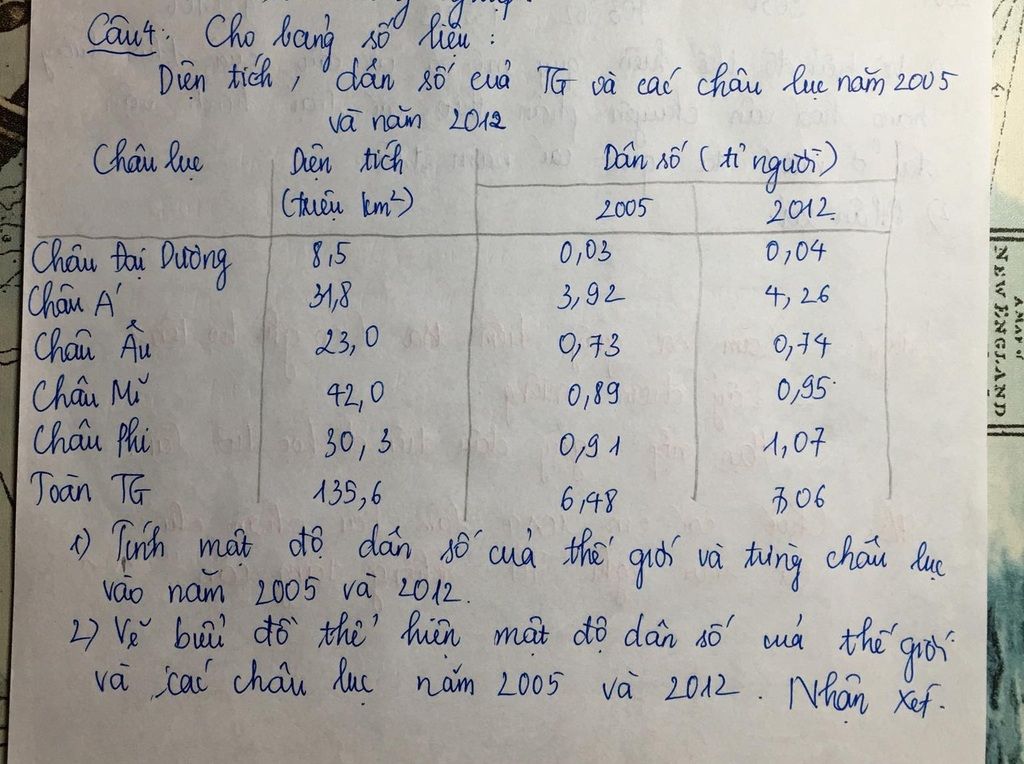 Câu 4: Cho bảng số liệu:
Diện tích, dân số của TG và các châu lục năm 2005
và năm 2012
Châu lục Diện tích Dân số (tỉ người)
(triệu km²) 2005 2012
Châu Đại Dương 8,5 0,03 0,04
Châu Á 31,8 3,92 4,26
Châu Âu 23,0 0,73 0,74
Châu Mĩ 42,0 0,89 0,95
Châu Phi 30,3 0,91 1,07
Toàn TG 135,6 6,48 7,06
1) Tính mật độ dân số của thế giới và từng châu lục
vào năm 2005 và 2012.
2) Vẽ biểu đồ thể hiện mật độ dân số của thế giới
và các châu lục năm 2005 và 2012. Nhận xét.
NEW ENGLAND